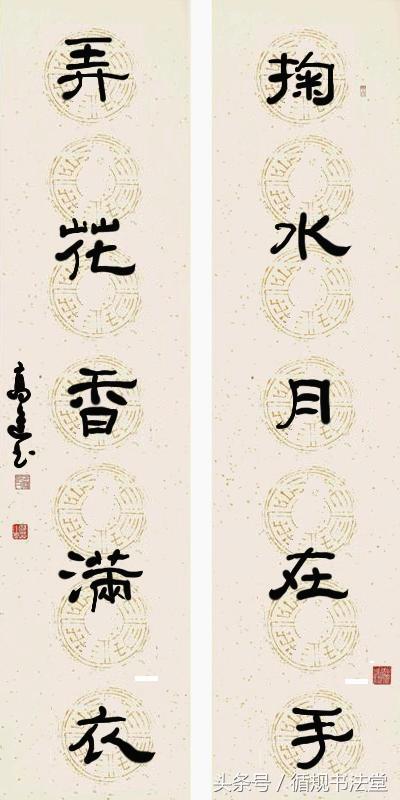 掬水月在手
弄花香满衣
头条号 / 循规书法堂